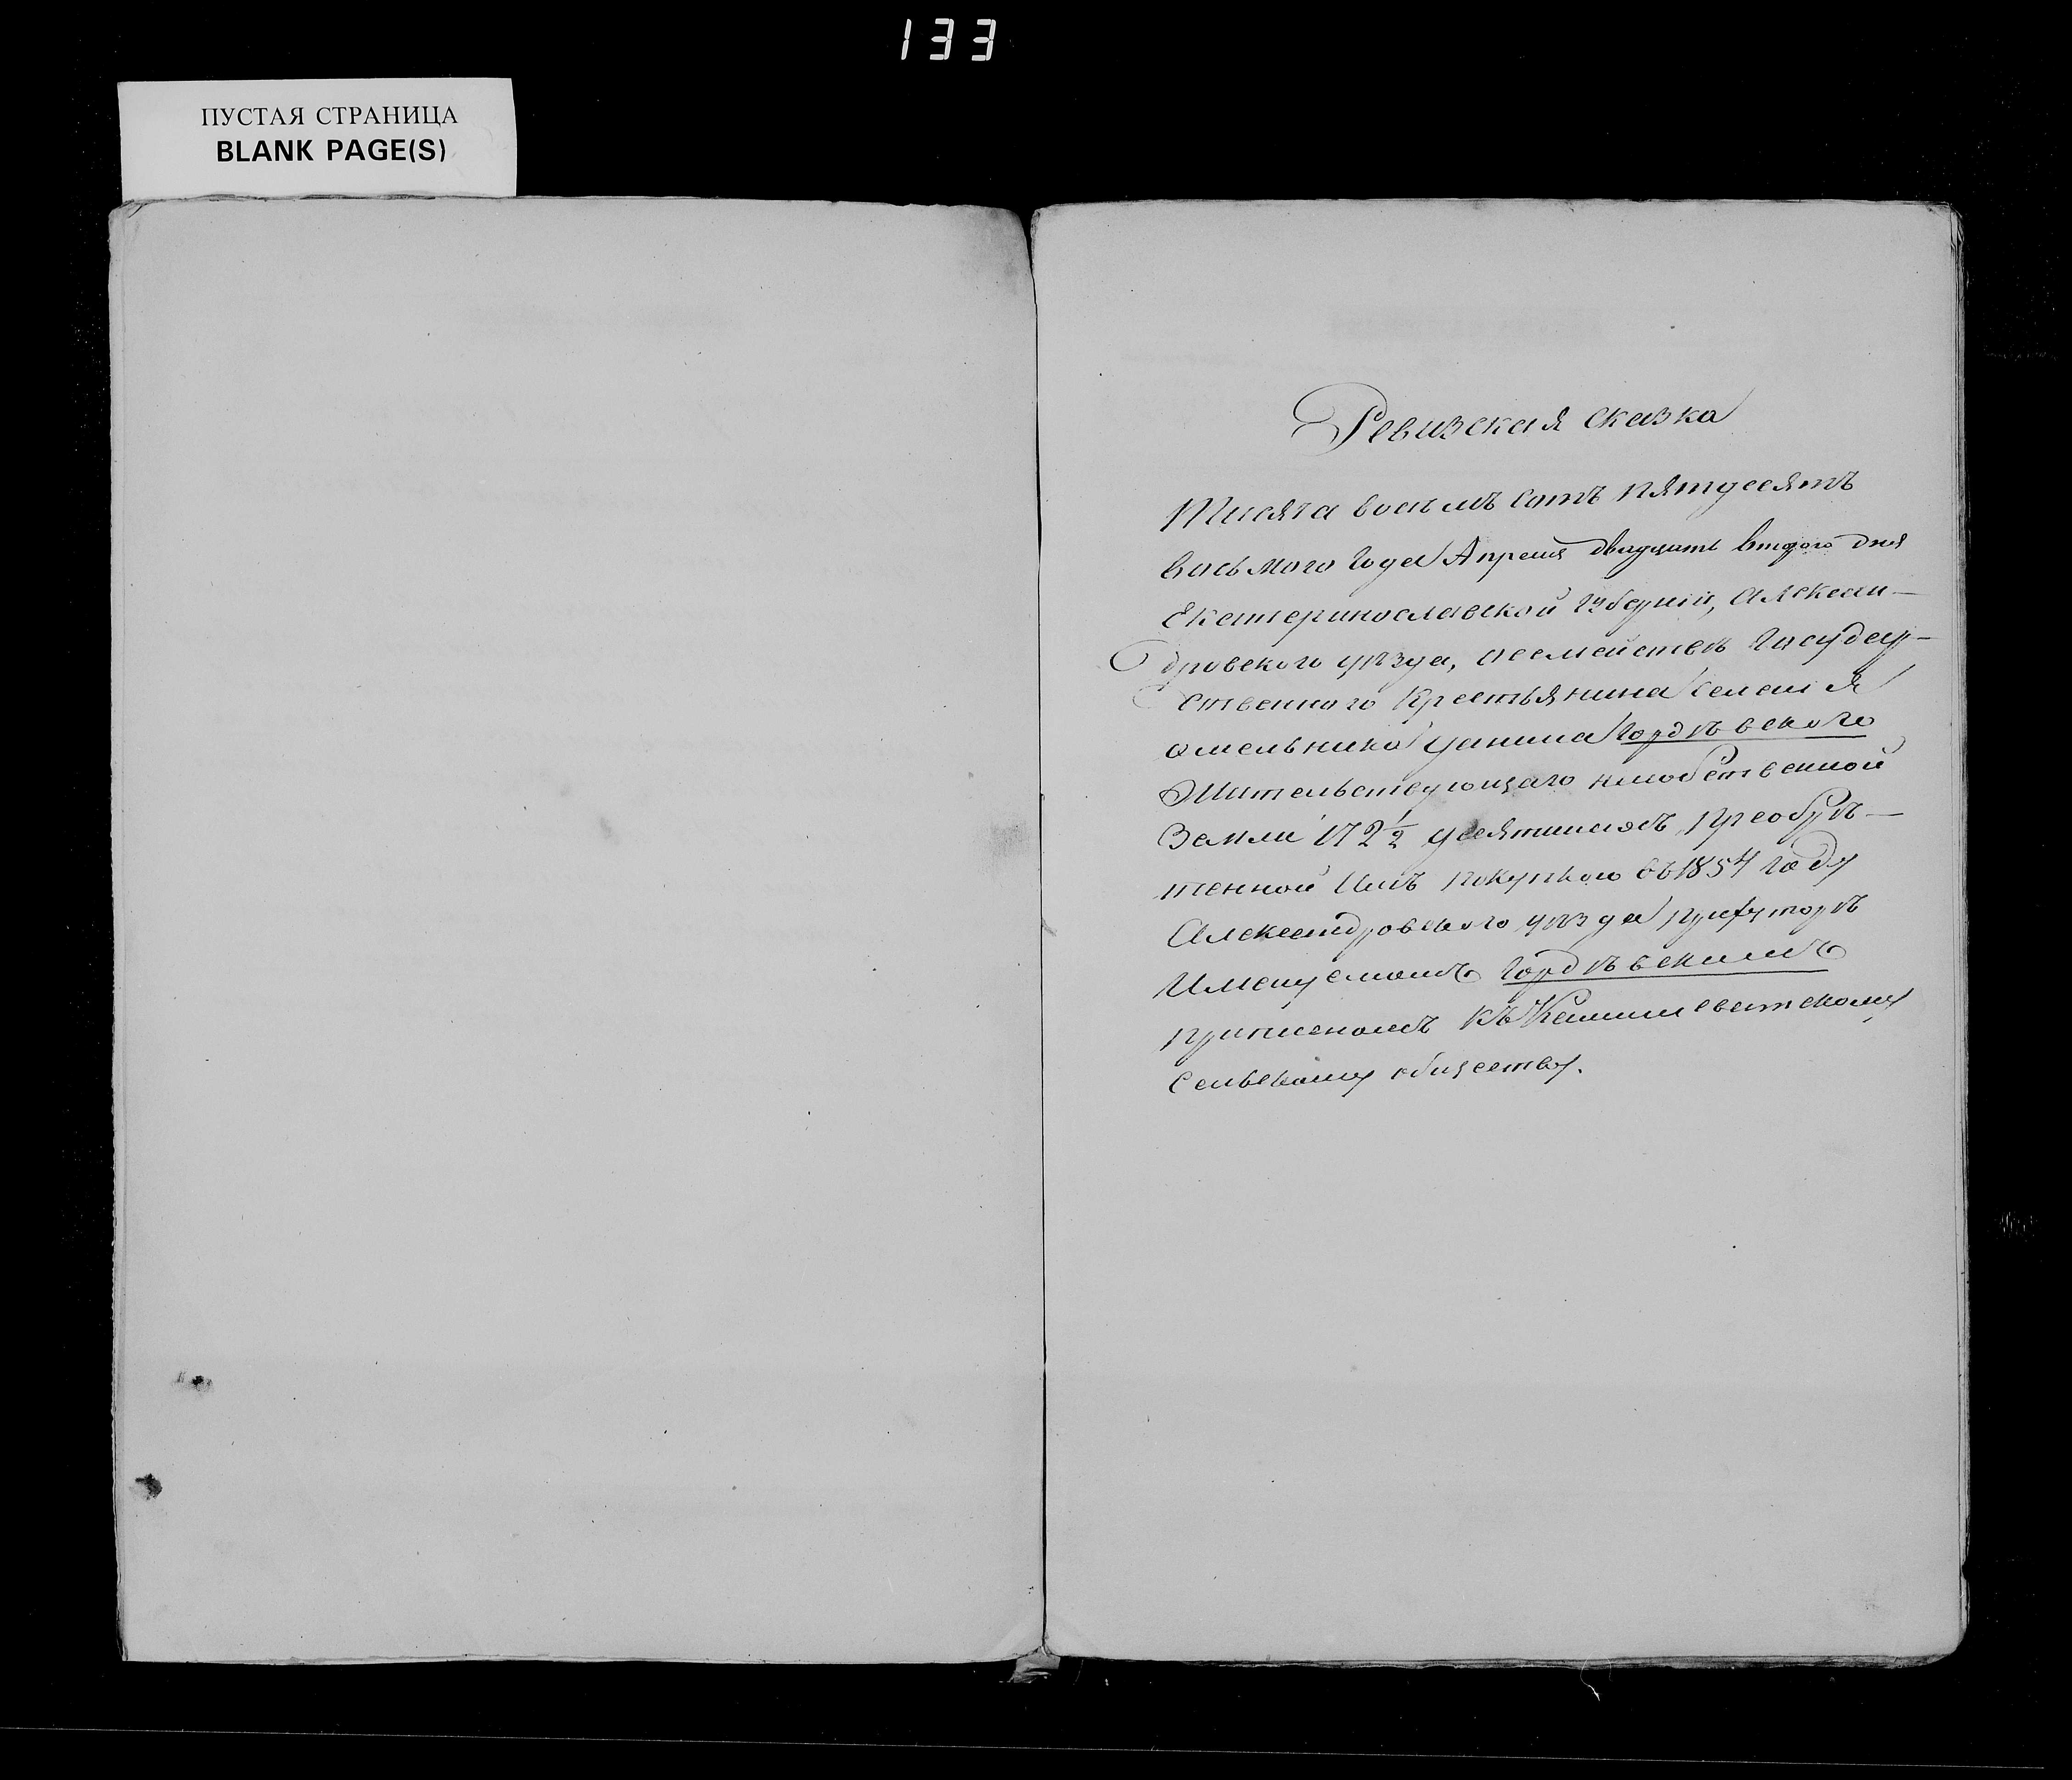 133
ПУСТАЯ СТРАНИЦА
BLANK PAGE(S)
Ревизская сказка
Тисяча восьмъ сотъ пятдесятъ
восьмого года Апреля двадцать второго дня
Екатеринославской губернии, Алексан-
дровского уѣзда, о семействѣ Государ-
ственного Крестьянина
Данила Гордѣевского
Жительствующаго насобственной
Земли 172½ десятинахъ, преобрѣ-
тенной имъ покупкою въ 1854 году
Александровского уѣзда прихуторѣ
Именуемомъ Гордѣевкимъ
приписеномъ къ Камишеватскому
Сельскому обществу.